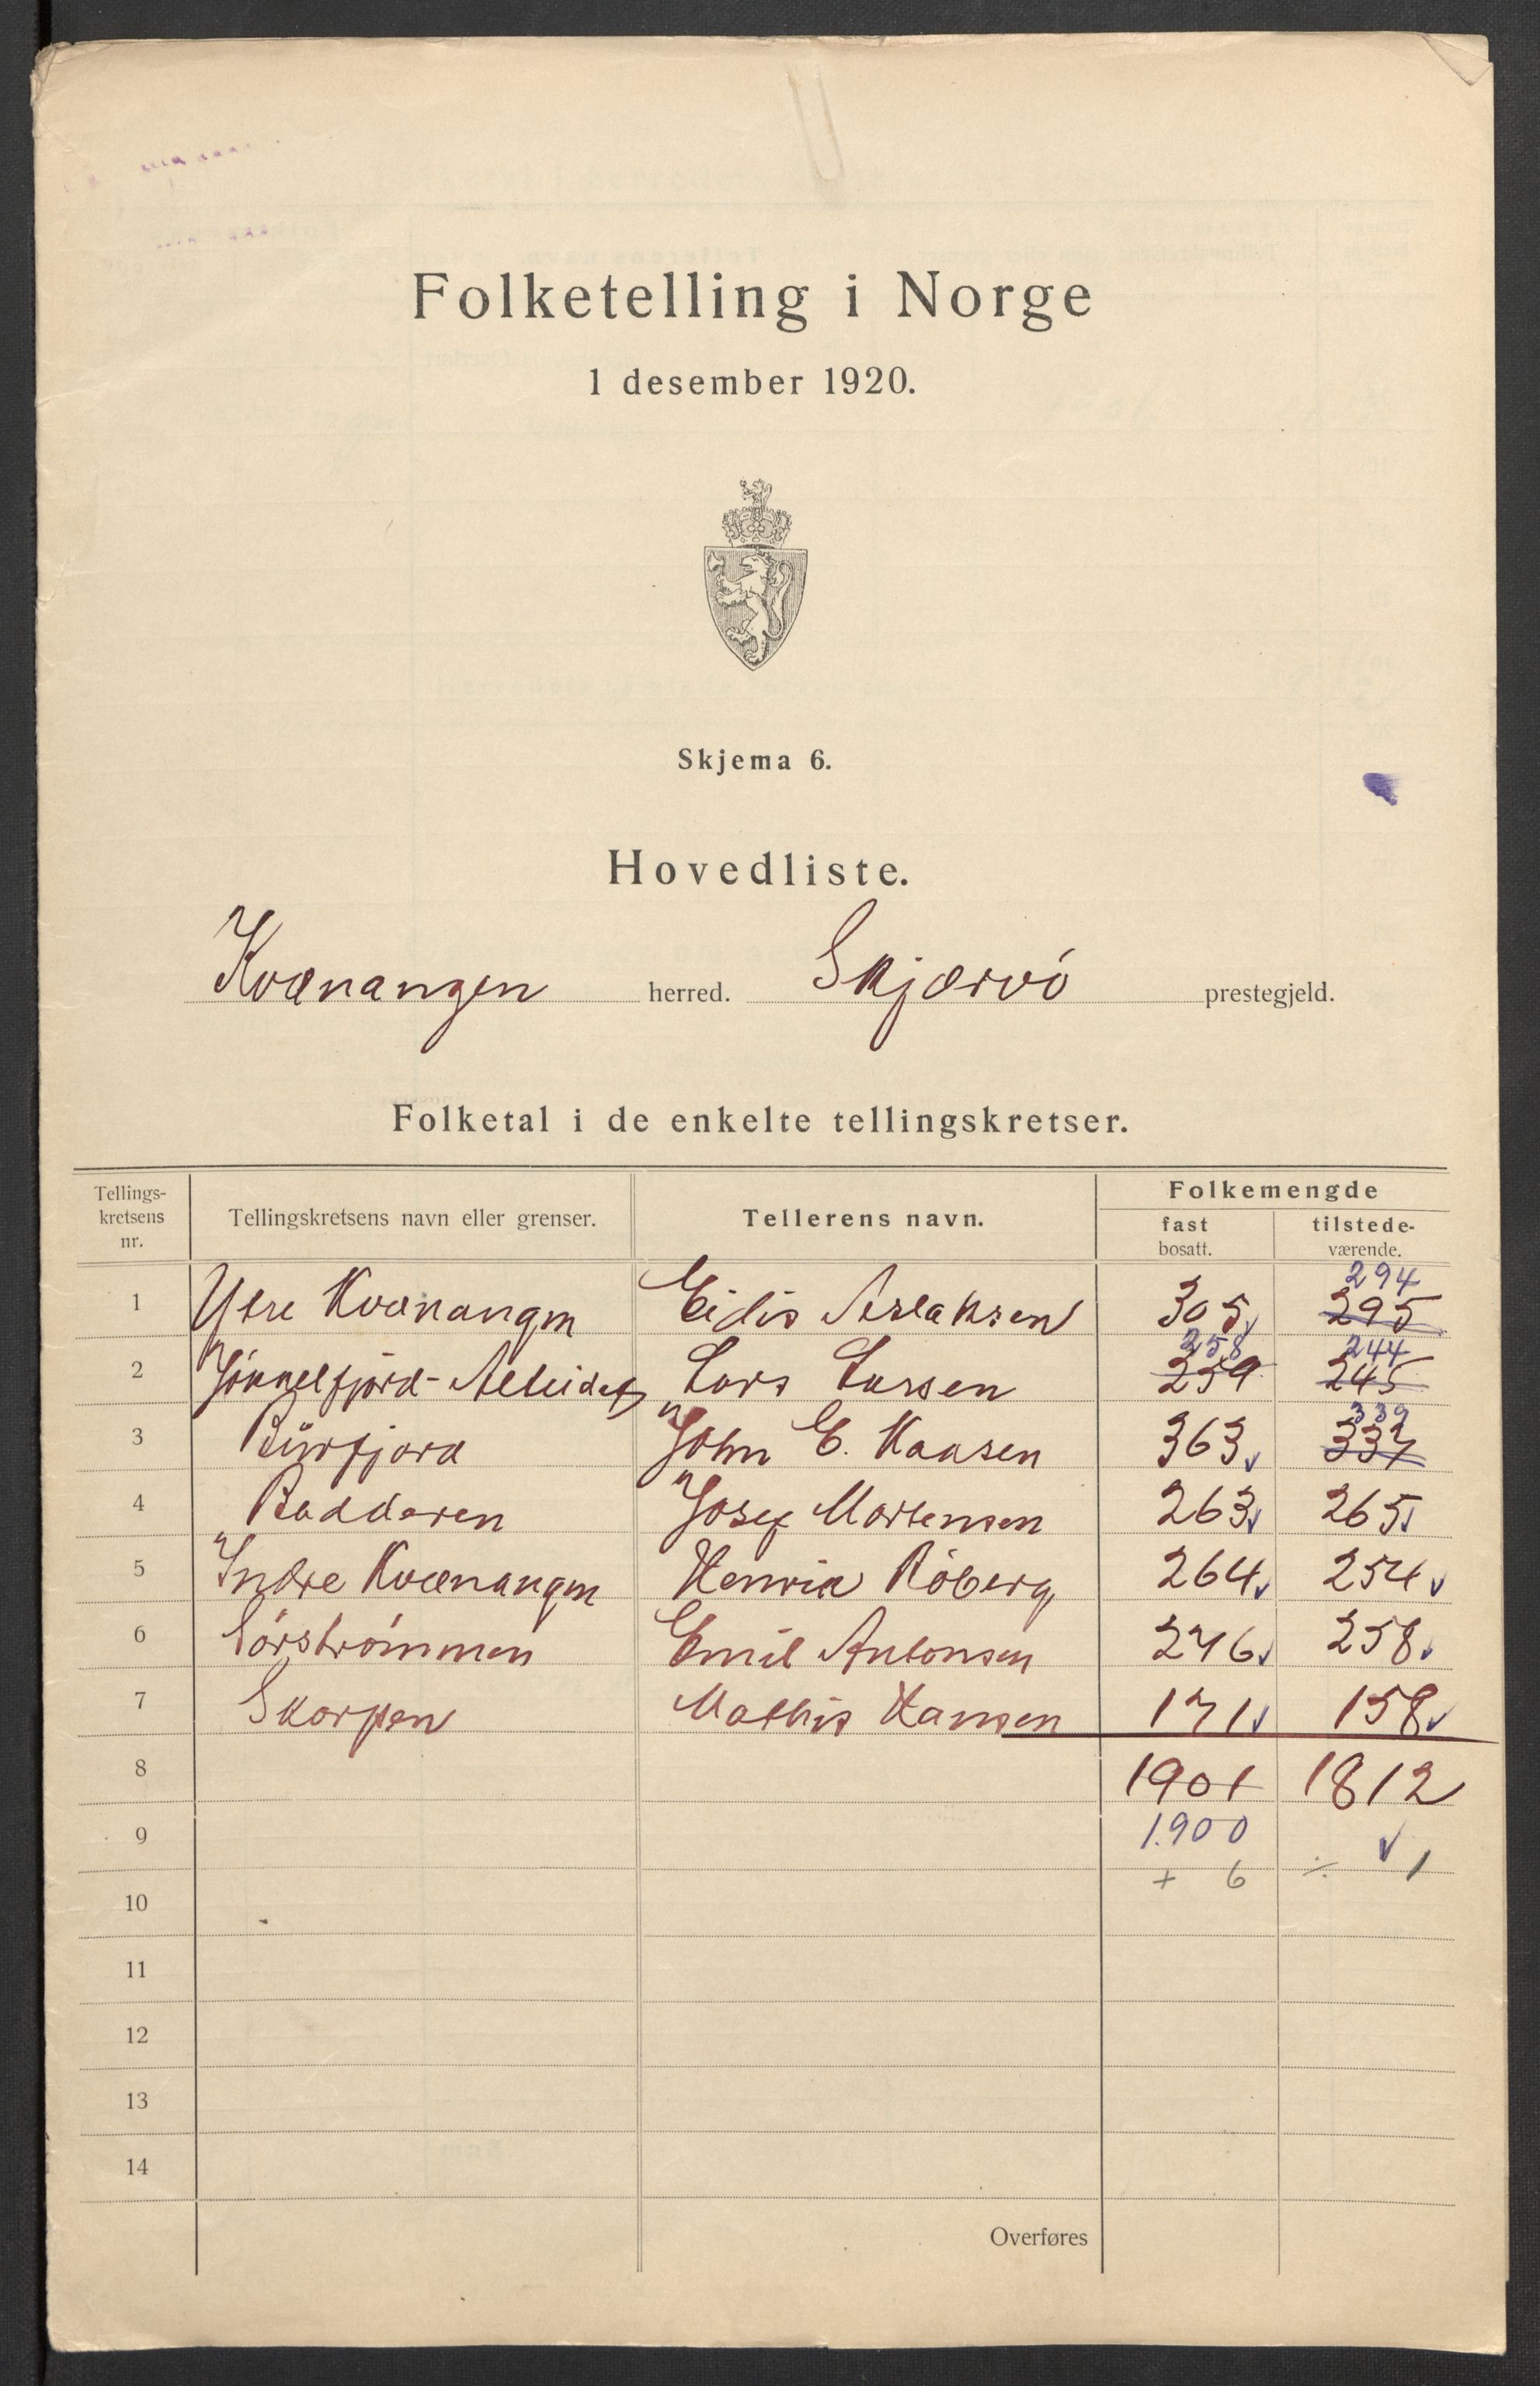 Folketelling i Norge
1 desember 1920.
Skjema 6.
Hovedliste.
Kvænangen herred. Skjærvö prestegjeld.
Folketal i de enkelte tellingskretser.
Tellings-kretsens nr. Tellingskretsens navn eller grenser. Tellerens navn. Folkemengde
fast bosatt. tilstede-værende.
294
1 Ytre Kvænangen Eidis Aslaksen 305 295
258 244
2 Jökkelfjord-Alteidet Lars Larsen 259 245
339
3 Burfjord John E. Kaasen 363 337
4 Badderen Josef Mortensen 263 265
5 Indre Kvænangen Henrik Röberg 264 254
6 Sörströmmen Emil Antonsen 276 258
7 Skorpen Mathis Hansen 171 158
8 1901 1812
9 1.900
+ 6 ÷ 1
10
11
12
13
14
Overføres